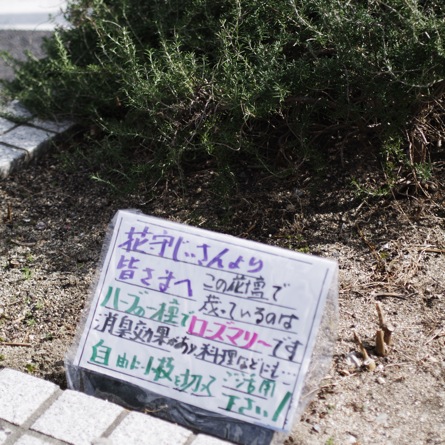 花守じぃさんより
皆さまへ この花壇で
残っているのは
ハーブの一種で ローズマリーです
消臭効果があり、料理などにも…
自由に1枝を切って ご活用
下さい!